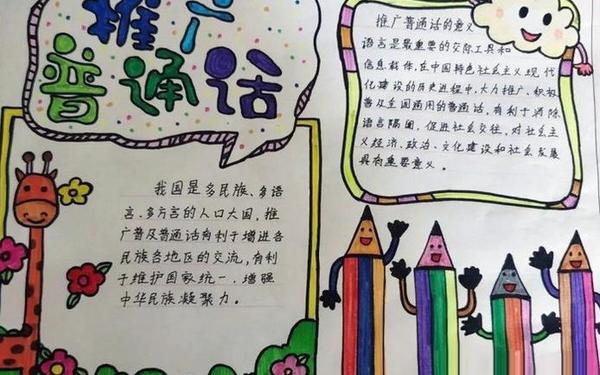 推广
普通话
我国是多民族、多语
言、多方言的人口大国，推
广普及普通话有利于增进各
民族各地区的交流，有利
于维护国家统一，增强
中华民族凝聚力。
推广普通话的意义
语言是最重要的交际工具和
信息载体，在中国特色社会主义现代
化建设的历史进程中，大力推广、积极
普及全国通用的普通话，有利于消除
语言隔阂，促进社会交往，对社会主
义经济、政治、文化建设和社会发展
具有重要意义。